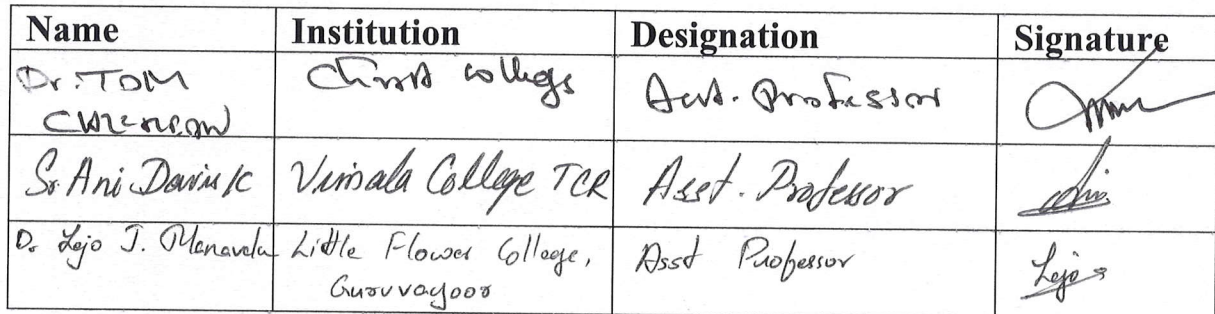 Name Institution Designation Signature
Dr. TOM Christ College Asst. Professor
Sr. Ani Davis K Vimala College TCR Asst. Professor
Dr Lejo J. Manavalan Little Flower College, Asst Professor Lejo
Guruvayoor